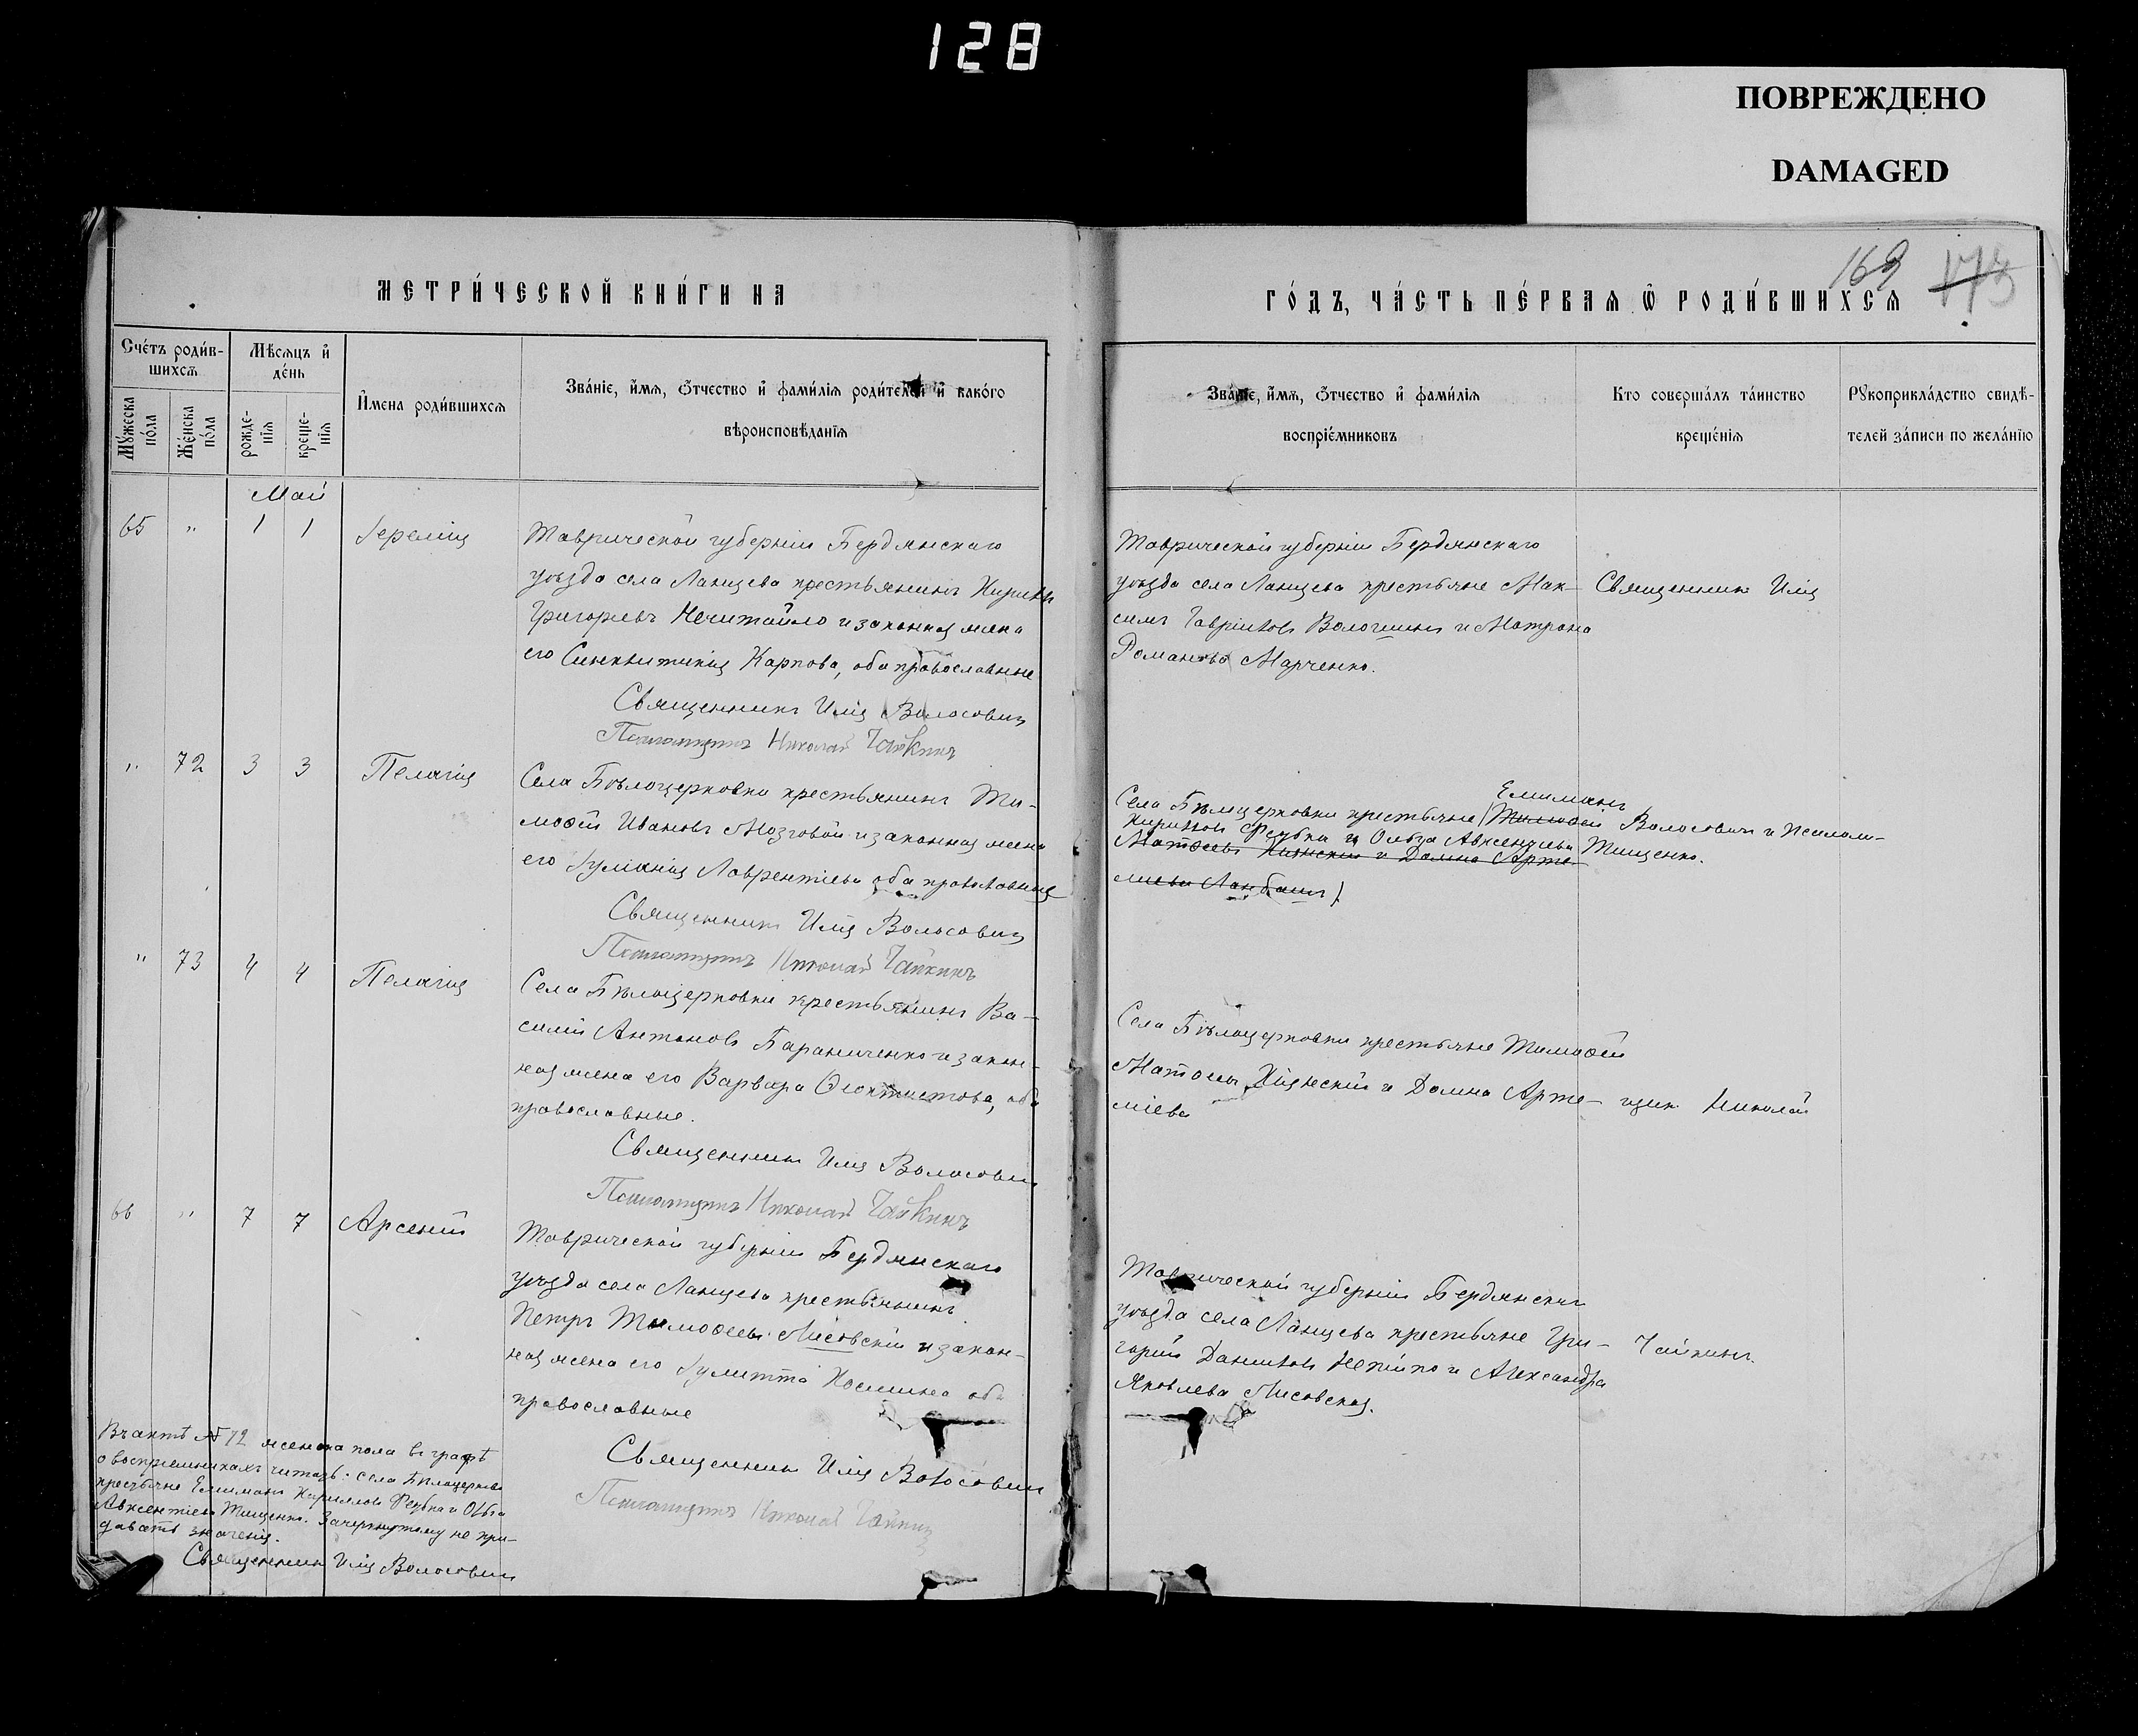 128
ПОВРЕЖДЕНО
DAMAGED
169 173
МЕТРИ́ЧЕСКОЙ КНИ́ГИ НА
ГО́ДЪ, ЧА́СТЬ ПЕ́РВАѦ Ѡ҆ РОДИ́ВШИХСѦ
Сче́тъ роди́в-
шихсѧ
Мѣ́сѧцъ и҆
де́нь
Мꙋ́жеска по́ла
Же́нска по́ла
рожде-
нїѧ
креще-
нїѧ
И҆мена роди́вшихсѧ
Зва́нїе, и҆́мѧ, ѻ҆́тчество и҆ фами́лїѧ роди́телей и҆ како́го
вѣроисповѣ́данїѧ
Зва́нїе, и҆́мѧ, ѻ҆́тчество и҆ фами́лїѧ
воспрїе́мниковъ
Кто соверша́лъ та́инство
креще́нїѧ
Рꙋкоприкла́дство свидѣ́-
телей за́писи по жела́нїю
Май
65 " 1 1 Іеремія
Таврической губерніи Бердянскаго
уѣзда села Ланцева крестьянинъ Кириллъ
Григорьевъ Нечитайло и законная жена
его Синклитикія Карпова, оба православные
Священникъ Илія Волосовичъ
Псаломщикъ Николай Чайкинъ
Таврической губерніи Бердянскаго
уѣзда села Ланцева крестьяне Мак-
симъ Гавріиловъ Волошинъ и Матрона
Романова Марченко.
Священникъ Илія
" 72 3 3 Пелагія
Села Бѣлоцерковки крестьянинъ Ти-
моѳей Ивановъ Мозговой и законная жена
его Іуліанія Лаврентіева оба православные
Священникъ Илія Волосовичъ
Псаломщикъ Николай Чайкинъ
Емиліанъ
Села Бѣлоцерковки крестьяне (Тимоѳей Волосовичъ и Псалом-
Кирилловъ Рѣубка и Ольга Авксентіева Тищенко.
Матѳеевъ и Домна Арте-
міева )
" 73 4 4 Пелагія
Села Бѣлоцерковки крестьянинъ Ва-
силій Антоновъ Бараниченко и закон-
ная жена его Варвара Ѳеоктистова, оба
православные.
Священникъ Илія Волосовичъ
Псаломщикъ Николай Чайкинъ
Села Бѣлоцерковки крестьяне Тимоѳей
Матѳеевъ и Домна Арте-
міева
щикъ Николай
66 " 7 7 Арсеній
Таврической губерніи Бердянскаго
уѣзда села Ланцева крестьянинъ
Петръ Тимоѳеевъ Лисовскій и закон-
ная жена его Іулитта Космина оба
православные
Священникъ Илія Волосовичъ
Псаломщикъ Николай Чайкинъ
Таврической губерніи Бердянскаго
уѣзда села Ланцева крестьяне Гри-
горій Даниловъ и Александра
Яковлева Лисовская.
Чайкинъ.
Въ актѣ № 72 женска пола въ графѣ
о воспріемникахъ читать: села Бѣлоцерковки
крестьяне Емиліанъ Кирилловъ Рѣубка и Ольга
Авксентіева Тищенко. Зачеркнутому не при-
давать значенія.
Священникъ Илія Волосовичъ